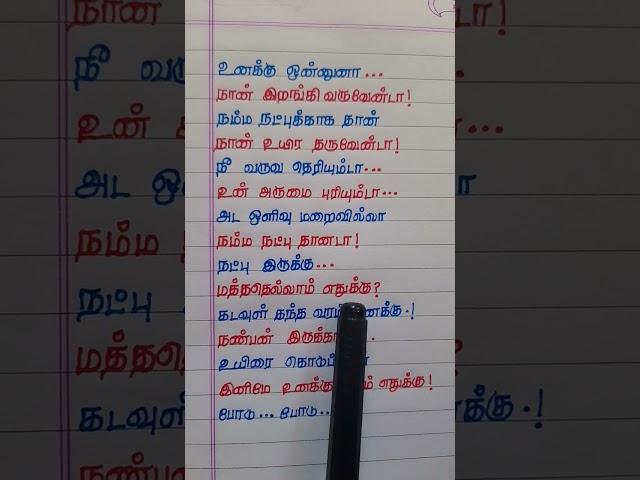 உனக்கு ஒன்னுனா...
நான் இறங்கி வருவேன்டா!
நம்ம நட்புக்காக தான்
நான் உயிர தருவேன்டா!
நீ வருவ தெரியும்டா...
உன் அருமை புரியும்டா...
அட ஒளிவு மறைவில்லா
நம்ம நட்பு தானடா!
நட்பு இருக்கு...
மத்ததெல்லாம் எதுக்கு?
கடவுள் தந்த வரம்
நண்பன்
உயிரை
இனிமே உனக்கு எதுக்கு!
போடு... போடு..